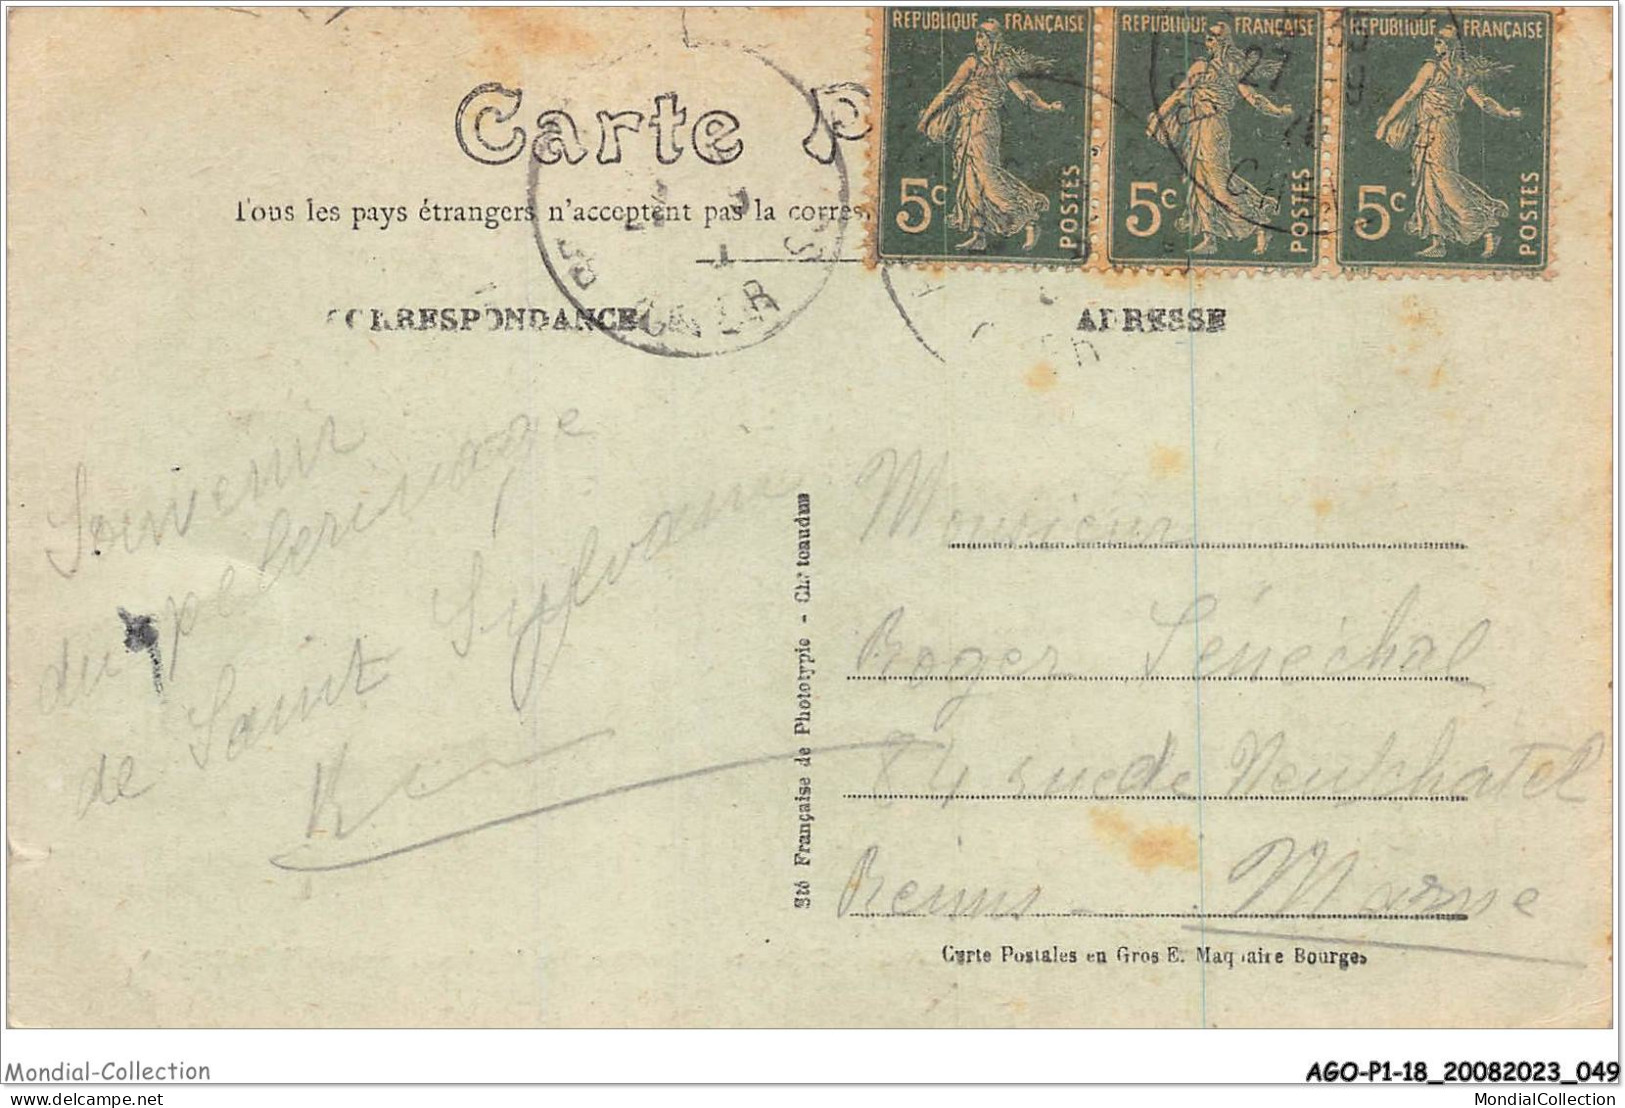 REPUBLIQUE FRANÇAISE
REPUBLIQUE FRANÇAISE
REPUBLIQUE FRANÇAISE
5c POSTES
5c POSTES
5c POSTES
27
Carte P
Tous les pays étrangers n'acceptent pas la corres
CORRESPONDANCE
ADRESSE
Souvenir
du pelerinage
de Saint Sylvain
Sté Française de Phototypie - Châteaudun
Monsieur
Roger Sénéchal
84 rue de Neutchatel
Reims - Marne
Carte Postales en Gros E. Maquaire Bourges
Mondial-Collection
AGO-P1-18_20082023_049
delcampe.net
MondialCollection